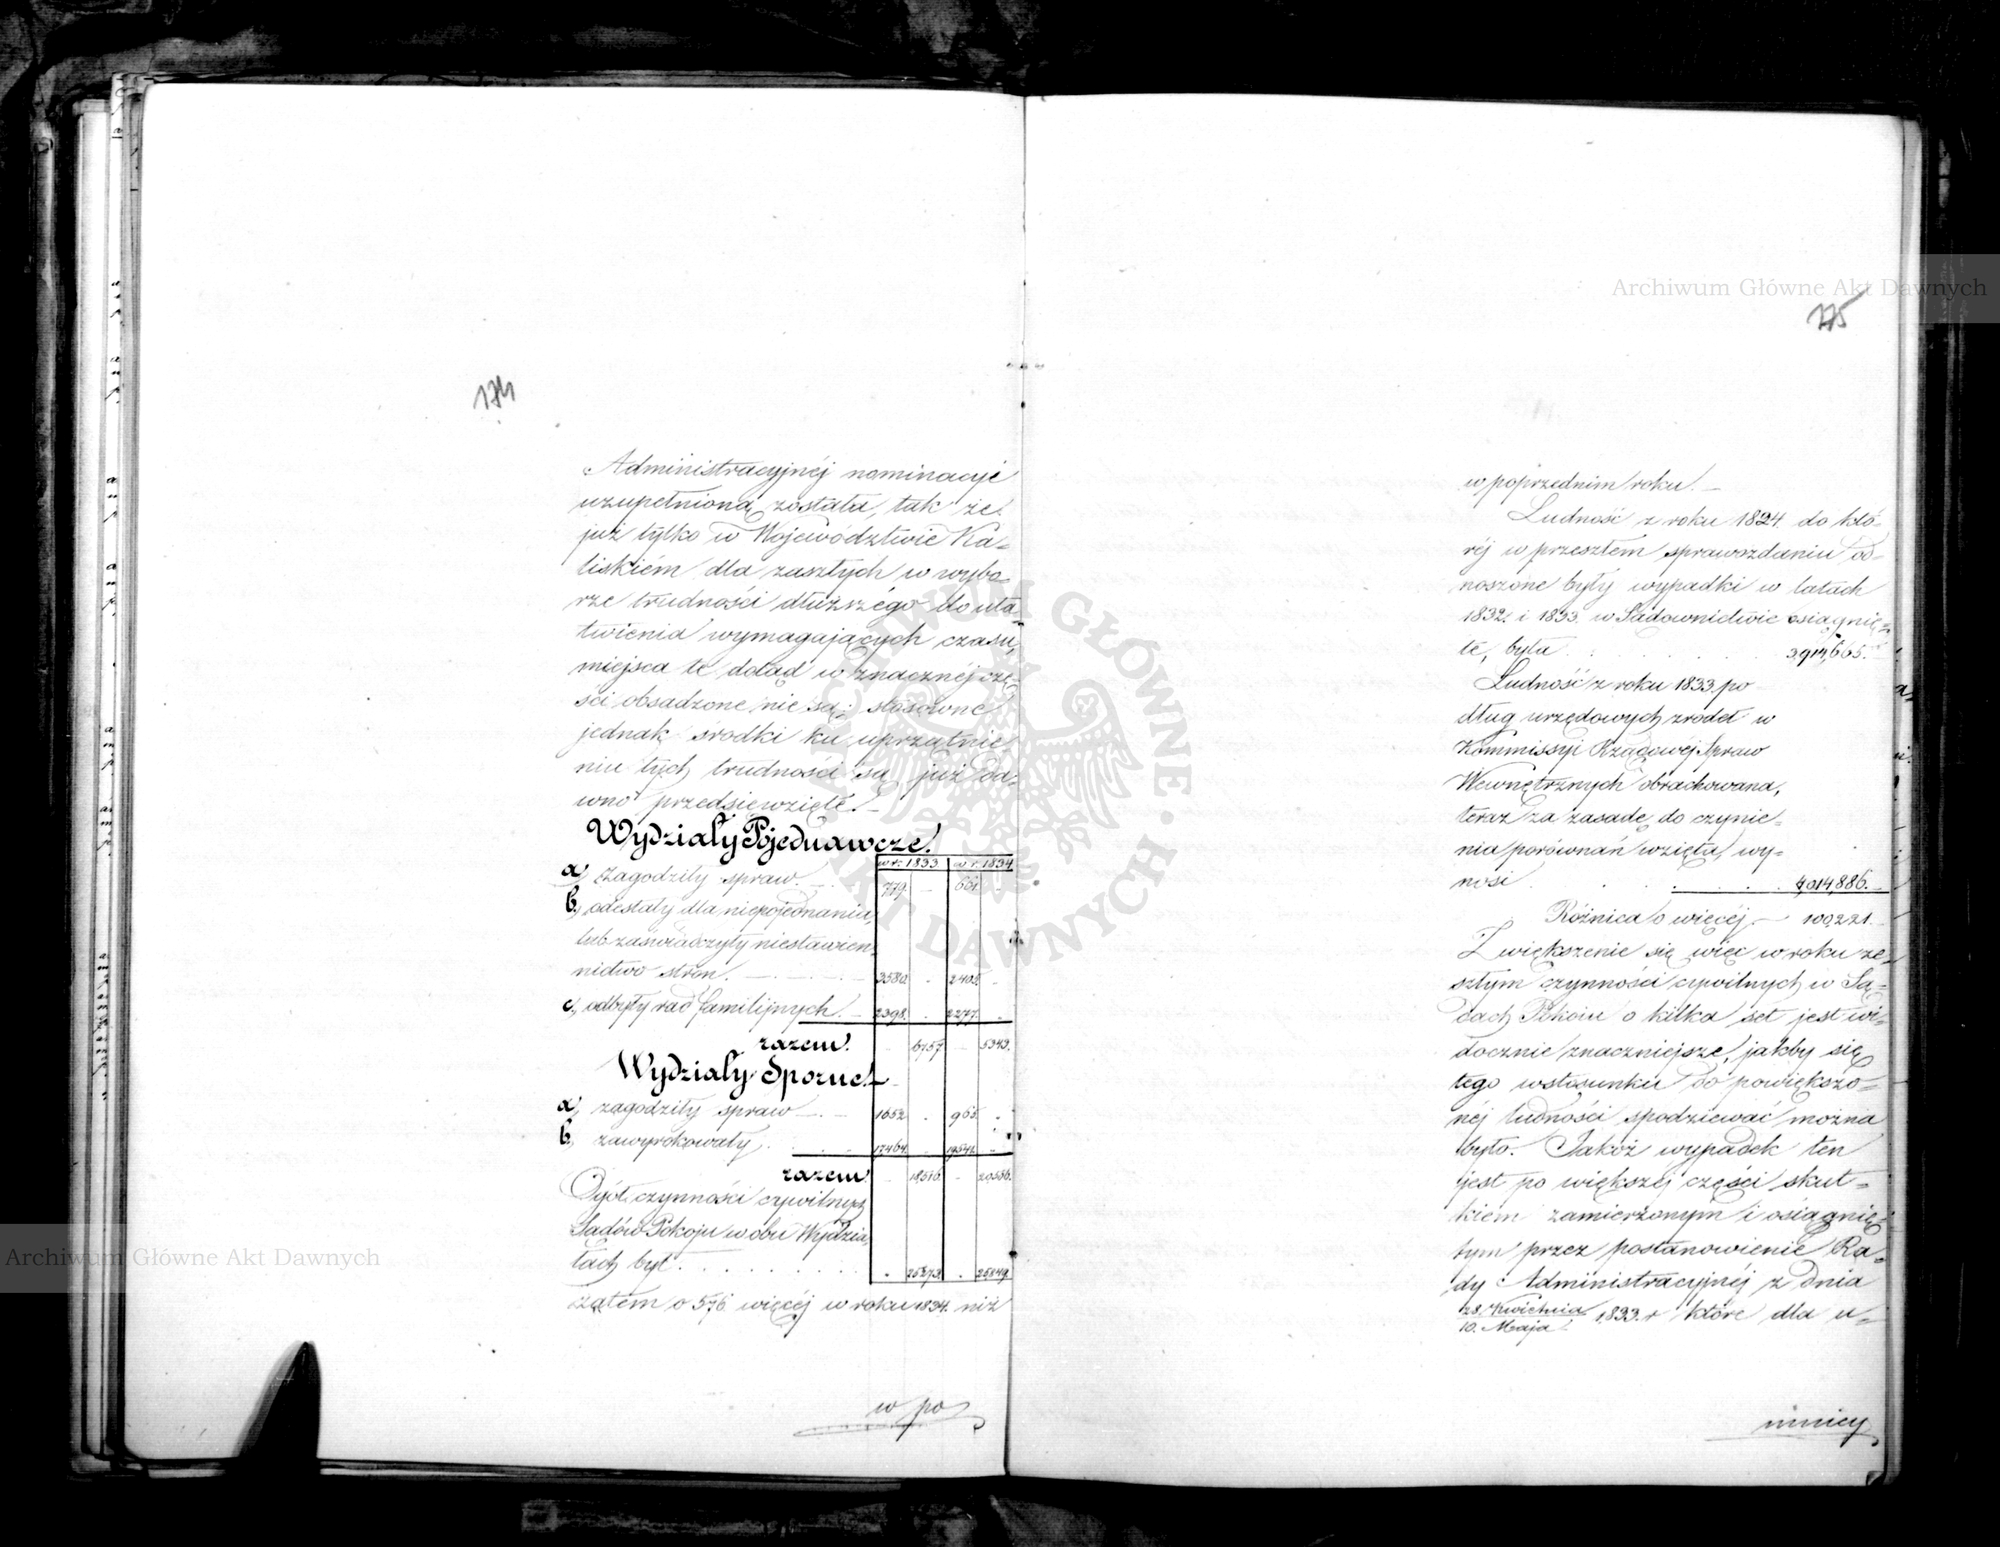 174
Administracyjnéj nominacyie
uzupełnioną została, tak że
już tylko w Województwie Ka-
liskiém dla zaszłych w wybo-
rze trudności dłuższego do uła-
twienia wymagających czasu,
miejsca te dotąd w znacznéj czę-
ści obsadzone nie są; stosowne
jednak środki ku uprzątnie-
niu tych trudności są już da-
wno przedsięwzięte. –
Wydziały Pojednawcze.
w r. 1833. w r. 1834.
a, zagodziły spraw. 779. 661.
b, odesłały dla niepojednania,
lub zaświadczyły niestawien-
nictwo stron. 3580. 2405.
c, odbyły rad familijnych. 2398. 2277.
razem. 6757. 5343.
Wydziały Sporne.
a, zagodziły spraw 1052. 965.
b, zawyrokowały. 17464. 19541.
razem 18516. 20506.
Ogół czynności cywilnych
Sądów Pokoju w obu Wydzia-
łach był 25273. 25849.
zatem o 576 więcéj w roku 1834. niż
w po
175
w poprzednim roku. –
Ludność z roku 1824. do któ-
réj w przeszłem sprawozdaniu od-
noszone były wypadki w latach
1832. i 1833. w Sądownictwie osiągnię-
te, była 3,914,665.
Ludność z roku 1833. po-
dług urzędowych źródeł w
Kommissyi Rządowéj Spraw
Wewnętrznych obrachowana,
teraz za zasadę do czynie-
nia porównań wzięta, wy-
nosi 4,014,886.
Różnica o więcéj 100,221.
Zwiększenie się więc w roku ze-
szłym czynności cywilnych w Są-
dach Pokoju o kilka set jest wi-
docznie znaczniejsze, jakby się
tego w stosunku do powiększo-
néj ludności spodziewać można
było. Jakoż wypadek ten
jest po większej części skut-
kiem zamierzonym i osiągnię-
tym przez postanowienie Ra-
dy Administracyjnéj z dnia
28. Kwietnia
10. Maja 1833. r. które dla u-
Archiwum Główne Akt Dawnych
Archiwum Główne Akt Dawnych
ARCHIWUM GŁÓWNE AKT DAWNYCH